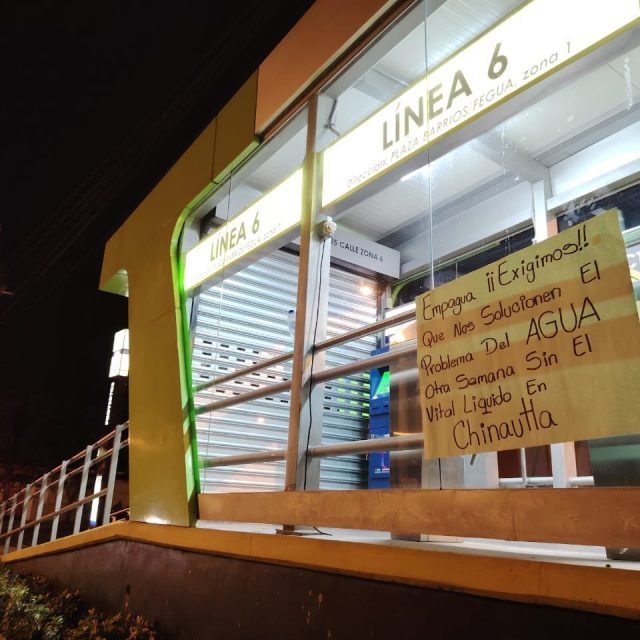 LÍNEA 6
Dirección: PLAZA BARRIOS/FEGUA, zona 1
LÍNEA 6
CALLE ZONA 6
Empagua ¡¡Exigimos!!
Que Nos Solucionen El
Problema Del AGUA
Otra Semana Sin El
Vital Líquido En
Chinautla